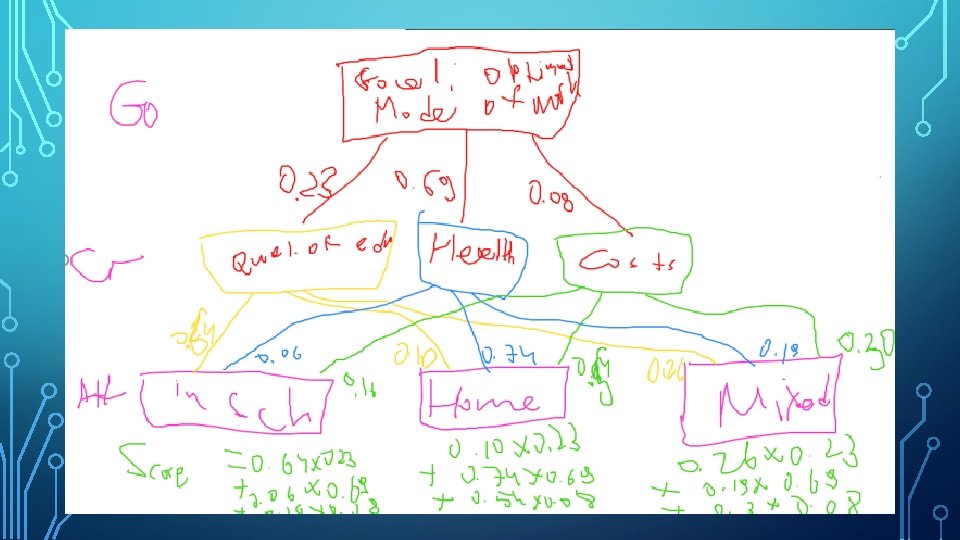 Go
Mode of work
0.23 0.69 0.08
Cr
Qual. of edu
Health
Costs
0.64
0.06
0.16
0.10
0.74
0.26
0.19
0.30
Alt
In Sch
Home
Mixed
Score
=0.64x0.23
+0.06x0.69
0.10x0.23
+ 0.74x0.69
+ 0.54x0.08
0.26x0.23
+ 0.19x0.69
+ 0.3x0.08